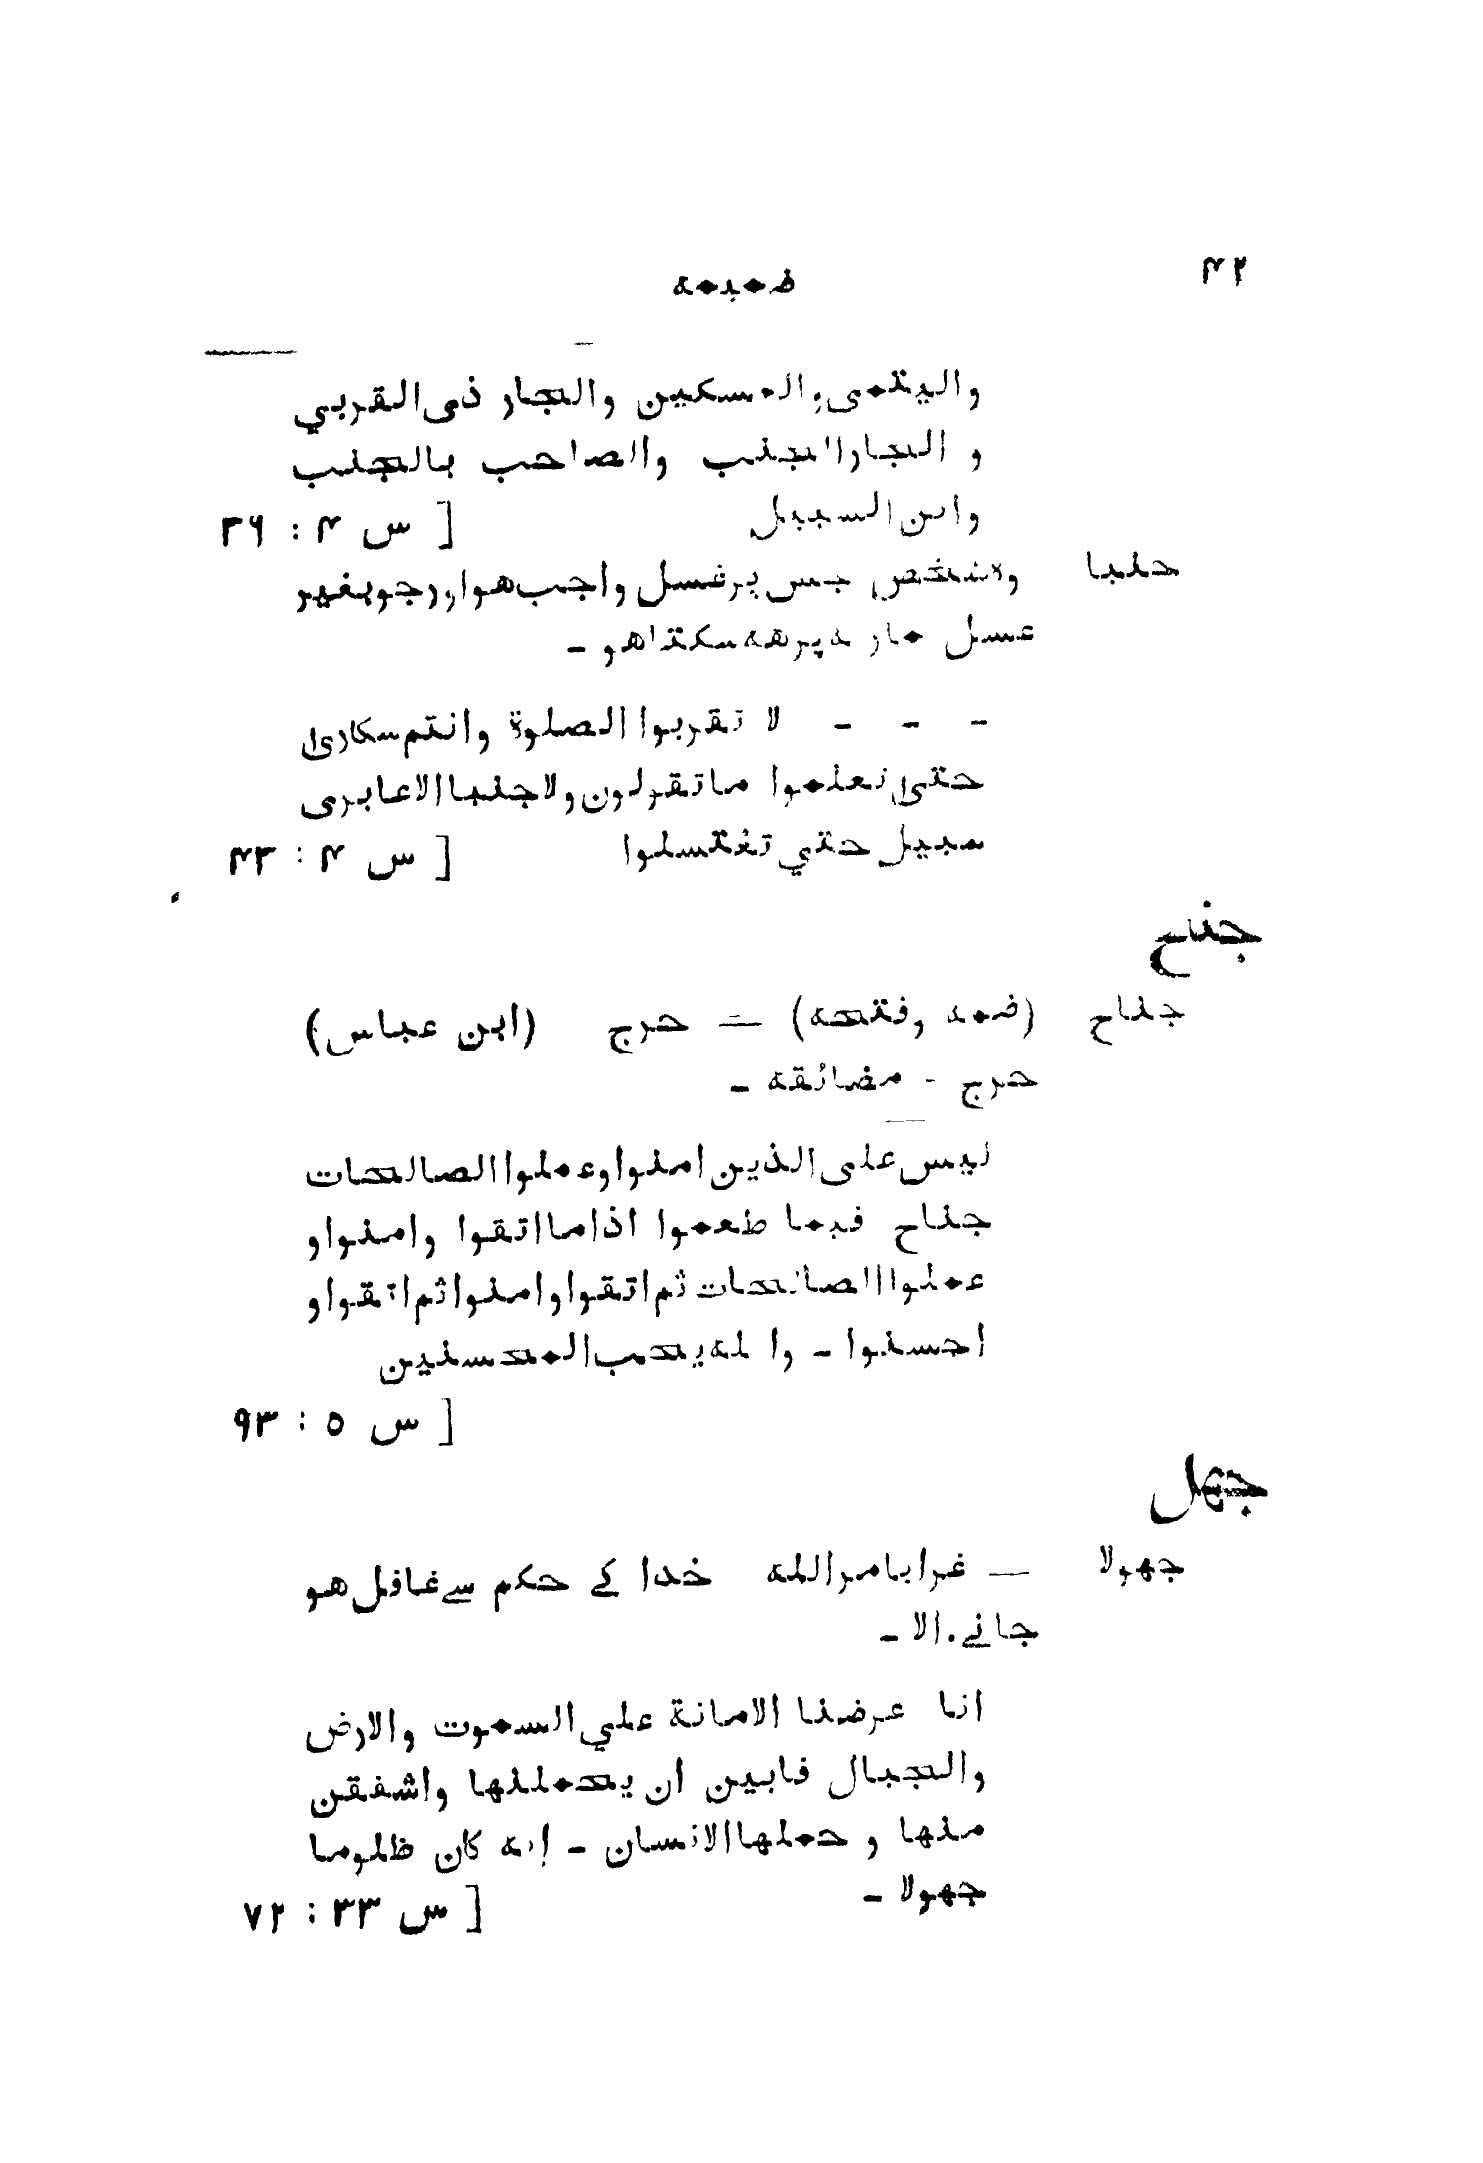 ۴۲
ضمیمه
والیتمی والمسکین والجار ذی القربی
و الجارالجنب والصاحب بالجنب
وابن السبیل [ س ۴ : ۳۶
جنبا وہ شخص جس پر غسل واجب هو اور جو بغیر
غسل نماز نه پڑهه سکتا هو -
- - - لا تقربوا الصلوة وانتم سکاری
حتی تعلموا ماتقولون ولاجنبا الاعابری
سبیل حتی تغتسلوا [ س ۴ : ۴۳
جناح
جناح (ضمه وفتحه) = حرج (ابن عباس)
حرج - مضائقه -
لیس علی الذین امنوا وعملوا الصالحات
جناح فیما طعموا اذاما اتقوا وامنوا و
عملوا الصالحات ثم اتقوا وامنوا ثم اتقوا و
احسنوا - والله یحب المحسنین
[ س ۵ : ۹۳
جهل
جهولا — غرا بامر الله خدا کے حکم سے غافل هو
جانے والا -
انا عرضنا الامانة علی السموت والارض
والجبال فابین ان یحملنها واشفقن
منها و حملها الانسان - انه کان ظلوما
جهولا - [ س ۳۳ : ۷۲